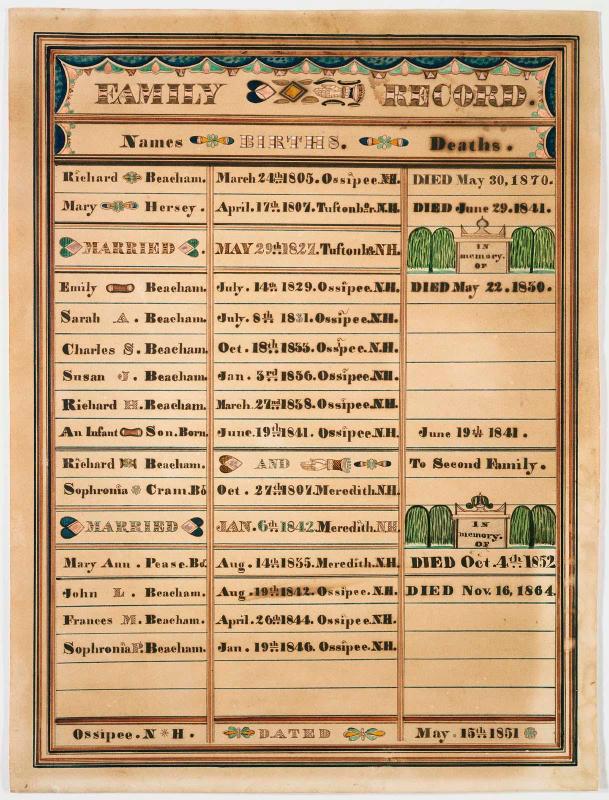 FAMILY RECORD.
Names BIRTHS. Deaths.
Richard Beacham. March 24th 1805. Ossipee. NH. DIED May 30, 1870.
Mary Hersey. April. 17th 1807. Tuftonbor. N.H. DIED June 29. 1841.
MARRIED. MAY 29th 1827. Tuftonbo NH. IN memory. OF
Emily Beacham. July. 14th 1829. Ossipee. N.H. DIED May 22. 1850.
Sarah A. Beacham. July. 8th 1831. Ossipee. N.H.
Charles S. Beacham. Oct. 18th 1833. Ossipee. N.H.
Susan J. Beacham. Jan. 3rd 1836. Ossipee. N.H.
Richard H. Beacham. March. 27nd 1838. Ossipee. N.H.
An Infant Son. Born. June. 19th 1841. Ossipee. N.H. June 19th 1841.
Richard Beacham. AND To Second Family.
Sophronia Cram. Bo Oct. 27th 1807. Meredith. N.H.
MARRIED JAN. 6th 1842. Meredith. NH. IN memory. OF
Mary Ann. Pease. Bo. Aug. 14th 1835. Meredith. N.H. DIED Oct. 4th 1852
John L. Beacham. Aug. 19th 1842. Ossipee. N.H. DIED Nov. 16, 1864.
Frances M. Beacham. April. 26th 1844. Ossipee. N.H.
Sophronia P. Beacham. Jan. 19th 1846. Ossipee. N.H.
Ossipee. N * H. DATED May. 15th 1851